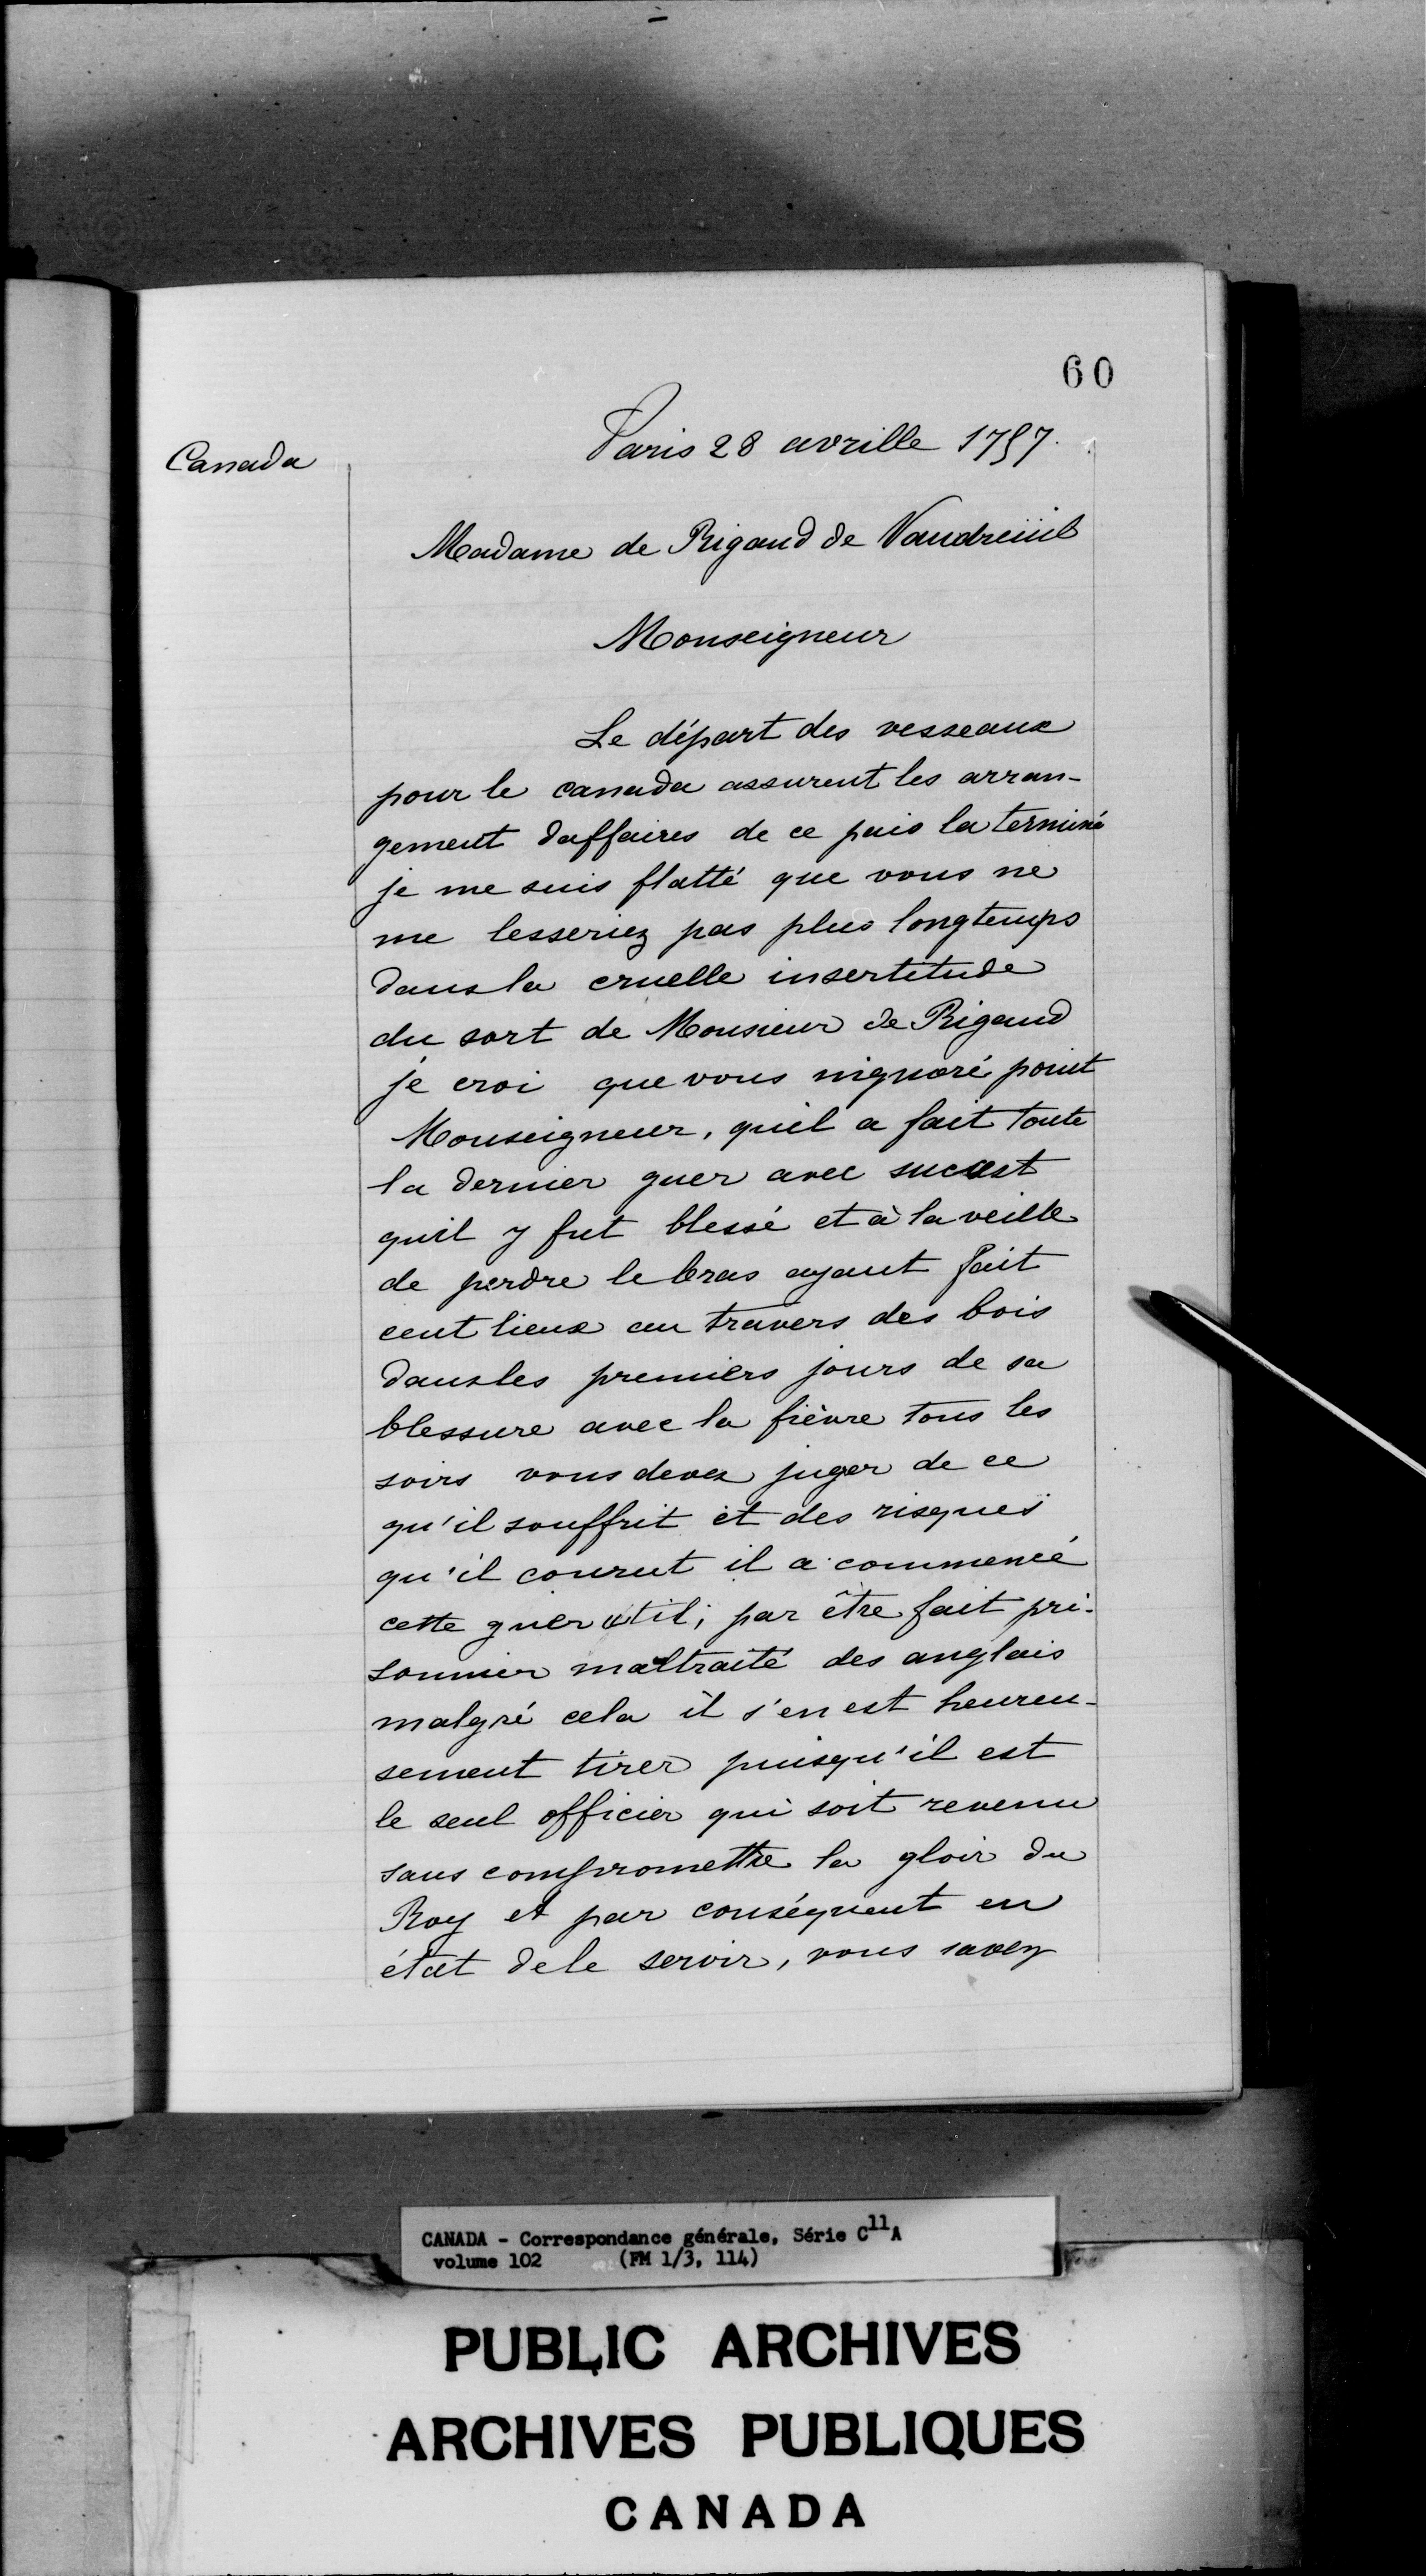 60
Paris 28 avrille 1757.
Canada
Madame de Rigaud de Vaudreüil
Monseigneur
Le départ des vesseaux
pour le canada assurent les arran-
gement daffaires de ce païs la terminé
je me suis flatté que vous ne
me lesseriez pas plus longtemps
dans la cruelle insertitude
du sort de Monsieur de Rigaud
je croi que vous nignoré point
Monseigneur, quil a fait toute
la dernier guer avec sucest
quil y fut blessé et à la veille
de perdre le bras ayant fait
cent lieux au travers des bois
dans les premiers jours de sa
blessure avec la fièvre tous les
soirs vous devez juger de ce
qu'il souffrit et des risques
qu'il courut il a commencé
cette guer util; par être fait pri-
sonnier maltraité des anglais
malgré cela il s'en est heureu-
sement tirer puisqu'il est
le seul officier qui soit revenu
sans compromettre la gloir du
Roy et par conséquent en
état de le servir, vous savez
CANADA - Correspondance générale, Série C11A
volume 102 (FM 1/3, 114)
PUBLIC ARCHIVES
ARCHIVES PUBLIQUES
CANADA